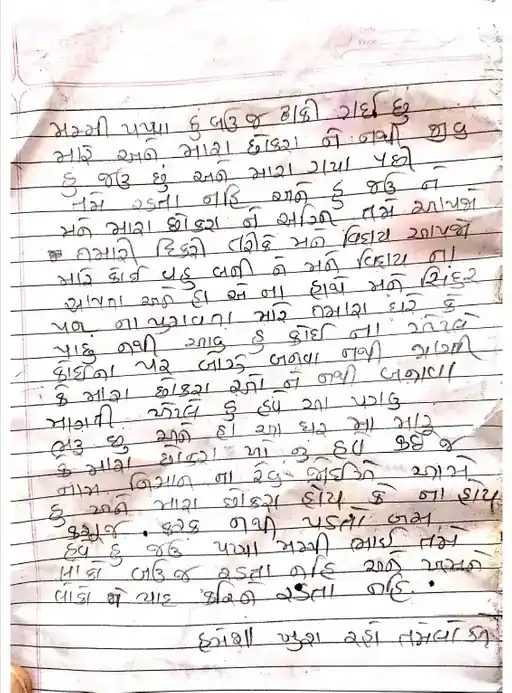 મમ્મી પપ્પા હું બઉ જ થાકી ગઈ છું
મારે અને મારા છોકરા ને નથી જીવવુ
હું જઉ છું અને મારા ગયા પછી
તમે રડતા નહિ અને હું જઉ ને
મને મારા છોકરા ને અગ્નિ તમે આપજો
તમારી દિકરી તરીકે મને વિદાય આપજો
મારે કોઈ વહુ બની ને મને વિદાય ના
આપતા અને હા એ ના હાથે મને સિંદુર
પણ ના પુરાવતા મારે તમારા ઘરે કે
પાછુ નથી આવુ હું કોઈ ના એટલે
કોઈના પર બોજ બનવા નથી માગતી
કે મારા છોકરા ને નથી બનાવા
માગતી એટલે હું હવે આ પગલુ
ભરુ છુ અને હા આ ઘર મા મારૂ
કે મારા છોકરા નુ હવે કઈ જ
નામ નિશાન ના રેવુ જોઈએ આમે
હુ અને મારા છોકરા હોય કે ના હોય
કશુજ ફરક નથી પડતો બસ
હવે હુ જઉ પપ્પા મમ્મી ભાઈ તમે
લોકો બઉ જ રડતા નહિ અને અમને
લોકો ને યાદ કરિને રડતા નહિ.
હંમેશા ખુશ રહો તમે લોકો